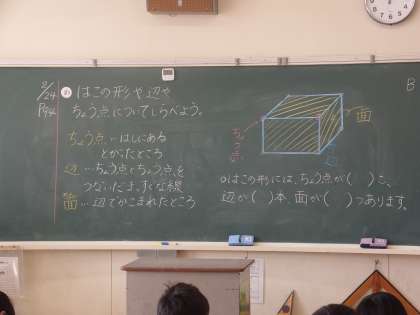 2/24
P94
め はこの形や辺や
ちょう点についてしらべよう。
ちょう点…はしにある
とがったところ
辺…ちょう点とちょう点を
つないだまっすぐな線
面…辺でかこまれたところ
ちょう点
面
辺
○はこの形には、ちょう点が( )こ、
辺が( )本、面が( )つあります。
B